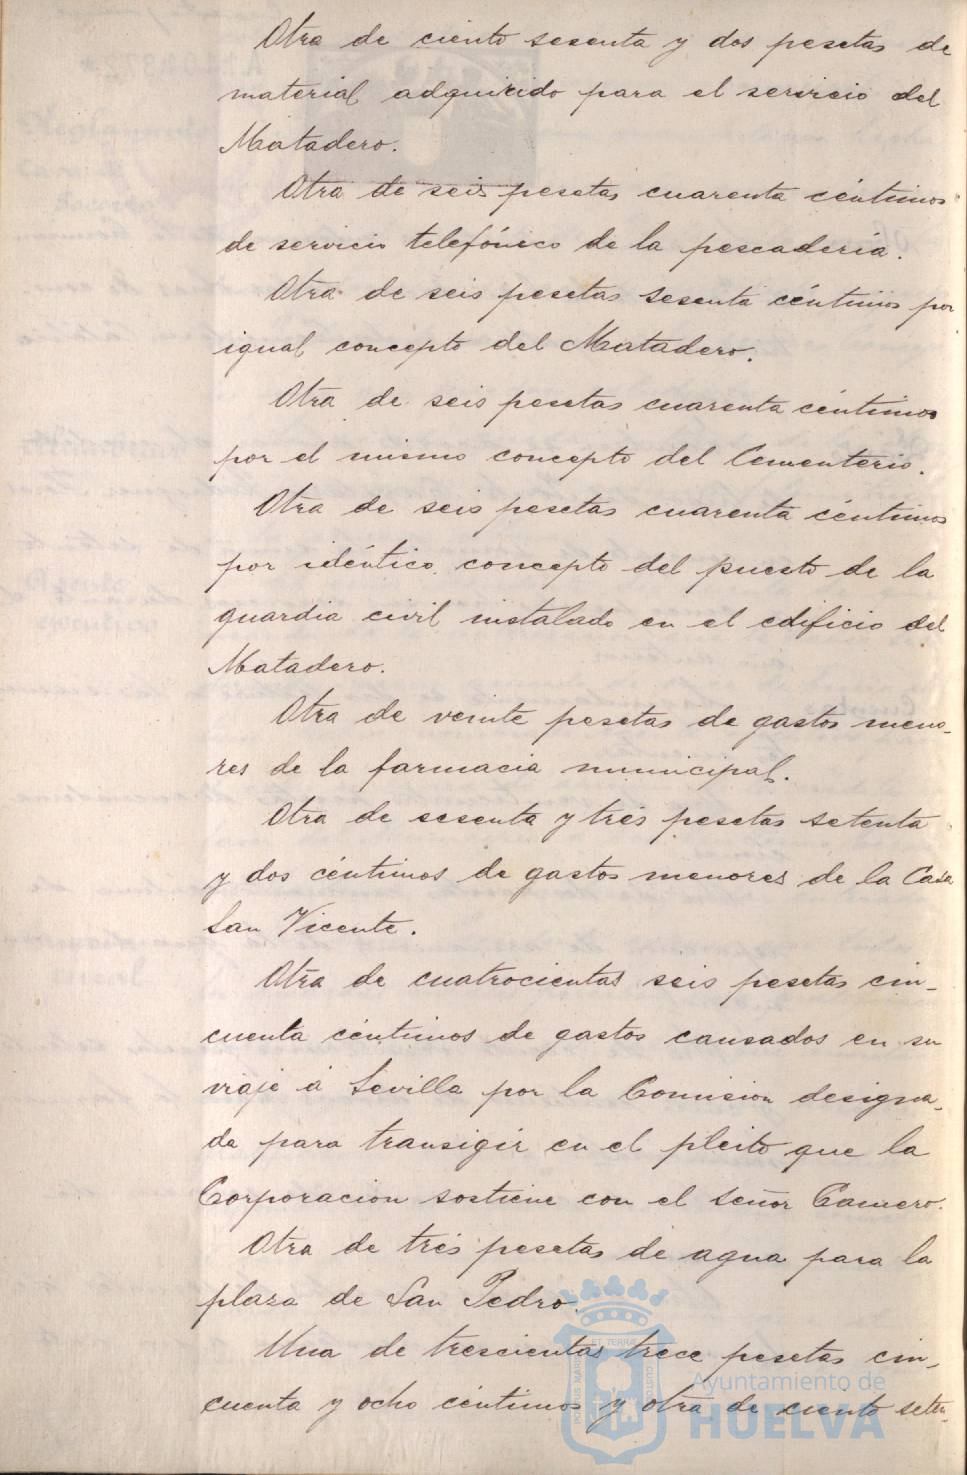 Otra de ciento sesenta y dos pesetas de
material adquirido para el servicio del
Matadero.
Otra de seis pesetas cuarenta céntimos
de servicio telefónico de la pescadería.
Otra de seis pesetas sesenta céntimos por
igual concepto del Matadero.
Otra de seis pesetas cuarenta céntimos
por el mismo concepto del Cementerio.
Otra de seis pesetas cuarenta céntimos
por idéntico concepto del puesto de la
guardia civil instalado en el edificio del
Matadero.
Otra de veinte pesetas de gastos meno-
res de la farmacia municipal.
Otra de sesenta y trés pesetas setenta
y dos céntimos de gastos menores de la Casa
San Vicente.
Otra de cuatrocientas seis pesetas cin-
cuenta céntimos de gastos causados en su
viaje á Sevilla por la Comision designa-
da para transigir en el pleito que la
Corporacion sostiene con el señor Camero.
Otra de trés pesetas de agua para la
plaza de San Pedro.
Una de trescientas trece pesetas cin-
cuenta y ocho céntimos y otra de ciento seten-
Ayuntamiento de
HUELVA